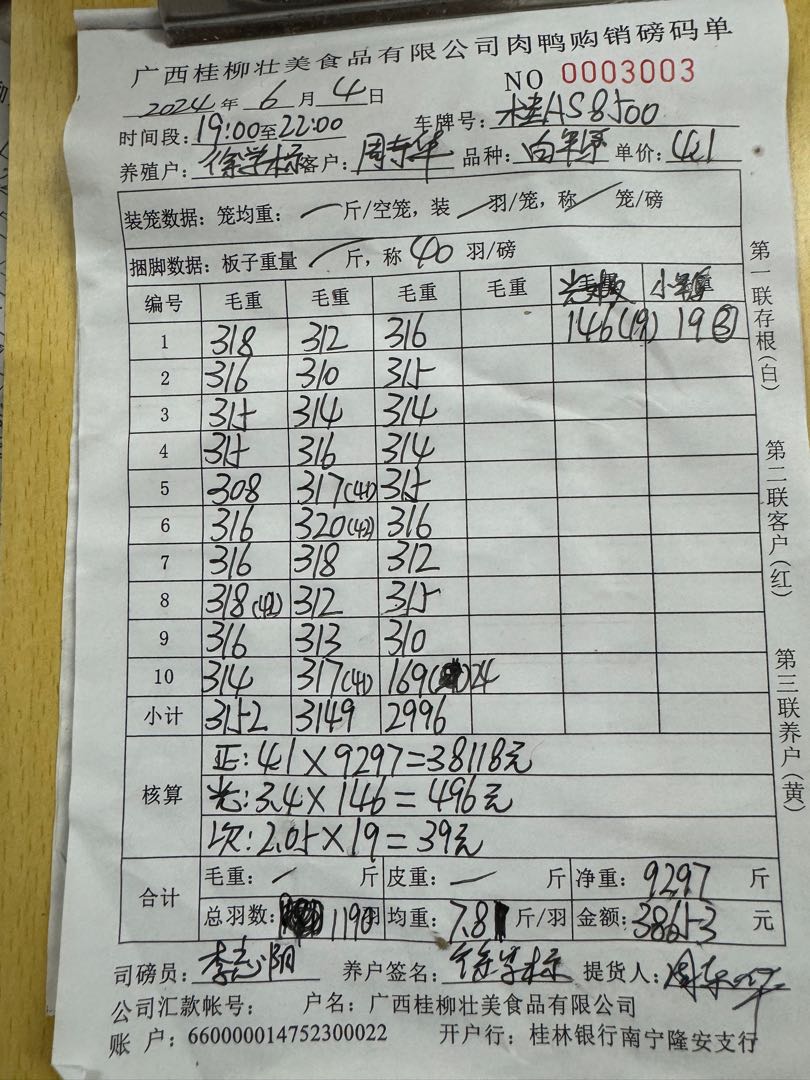 广西桂柳壮美食品有限公司肉鸭购销磅码单
NO 0003003
2024年6月4日
时间段:19:00至22:00 车牌号:桂AS8500
养殖户:徐学标 客户:周东华 品种: 单价:4.1
装笼数据:笼均重:/斤/空笼,装/羽/笼,称/笼/磅
捆脚数据:板子重量/斤,称40羽/磅
编号 毛重 毛重 毛重 毛重
1 318 312 316 146(19) 19③
2 316 310 315
3 315 314 314
4 315 316 314
5 308 317(41) 315
6 316 320(42) 316
7 316 318 312
8 318(42) 312 315
9 316 313 310
10 314 317(41) 169 24
小计 3152 3149 2996
核算
正:4.1×9297=38118元
光:3.4×146=496元
次:2.05×19=39元
合计
毛重:/斤 皮重:/斤 净重:9297斤
总羽数:1190羽 均重:7.81斤/羽 金额:38653元
司磅员:李志阴 养户签名:徐学标 提货人:周东华
公司汇款帐号: 户名:广西桂柳壮美食品有限公司
账户:660000014752300022 开户行:桂林银行南宁隆安支行
第一联存根(白)
第二联客户(红)
第三联养户(黄)